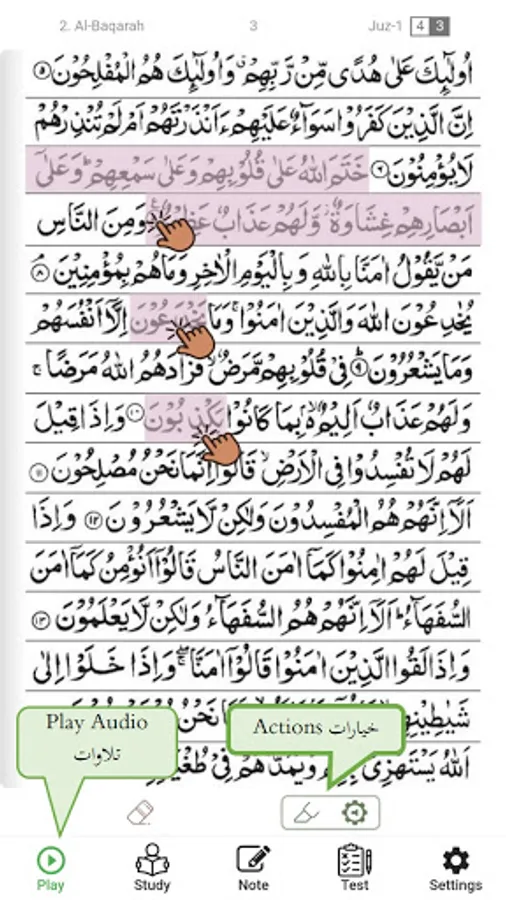 2. Al-Baqarah 3 Juz-1 4 3
اُولٰٓئِكَ عَلٰى هُدًى مِّنْ رَّبِّهِمْ ۙ وَاُولٰٓئِكَ هُمُ الْمُفْلِحُوْنَ ۝۵
اِنَّ الَّذِيْنَ كَفَرُوْا سَوَآءٌ عَلَيْهِمْ ءَاَنْذَرْتَهُمْ اَمْ لَمْ تُنْذِرْهُمْ
لَا يُؤْمِنُوْنَ ۝۶ خَتَمَ اللّٰهُ عَلٰى قُلُوْبِهِمْ وَعَلٰى سَمْعِهِمْ ؕ وَعَلٰٓى
اَبْصَارِهِمْ غِشَاوَةٌ ۫ وَّلَهُمْ عَذَابٌ وَمِنَ النَّاسِ
مَنْ يَّقُوْلُ اٰمَنَّا بِاللّٰهِ وَبِالْيَوْمِ الْاٰخِرِ وَمَا هُمْ بِمُؤْمِنِيْنَ ۝۸
يُخٰدِعُوْنَ اللّٰهَ وَالَّذِيْنَ اٰمَنُوْا ۚ وَمَا يَخْدَعُوْنَ اِلَّاۤ اَنْفُسَهُمْ
وَمَا يَشْعُرُوْنَ ۝۹ فِيْ قُلُوْبِهِمْ مَّرَضٌ ۙ فَزَادَهُمُ اللّٰهُ مَرَضًا ۚ
وَلَهُمْ عَذَابٌ اَلِيْمٌ ۢ ۙ بِمَا كَانُوْا يَكْذِبُوْنَ ۝۱۰ وَاِذَا قِيْلَ
لَهُمْ لَا تُفْسِدُوْا فِي الْاَرْضِ ۙ قَالُوْۤا اِنَّمَا نَحْنُ مُصْلِحُوْنَ ۝۱۱
اَلَاۤ اِنَّهُمْ هُمُ الْمُفْسِدُوْنَ وَلٰكِنْ لَّا يَشْعُرُوْنَ ۝۱۲ وَاِذَا
قِيْلَ لَهُمْ اٰمِنُوْا كَمَاۤ اٰمَنَ النَّاسُ قَالُوْۤا اَنُؤْمِنُ كَمَاۤ اٰمَنَ
السُّفَهَآءُ ؕ اَلَاۤ اِنَّهُمْ هُمُ السُّفَهَآءُ وَلٰكِنْ لَّا يَعْلَمُوْنَ ۝۱۳
وَاِذَا لَقُوا الَّذِيْنَ اٰمَنُوْا قَالُوْۤا اٰمَنَّا ۖۚ وَاِذَا خَلَوْا اِلٰى
نَحْنُ
اَللّٰهُ يَسْتَهْزِئُ بِهِمْ وَيَمُدُّهُمْ فِيْ
Play Audio
تلاوات
Actions خيارات
Play Study Note Test Settings